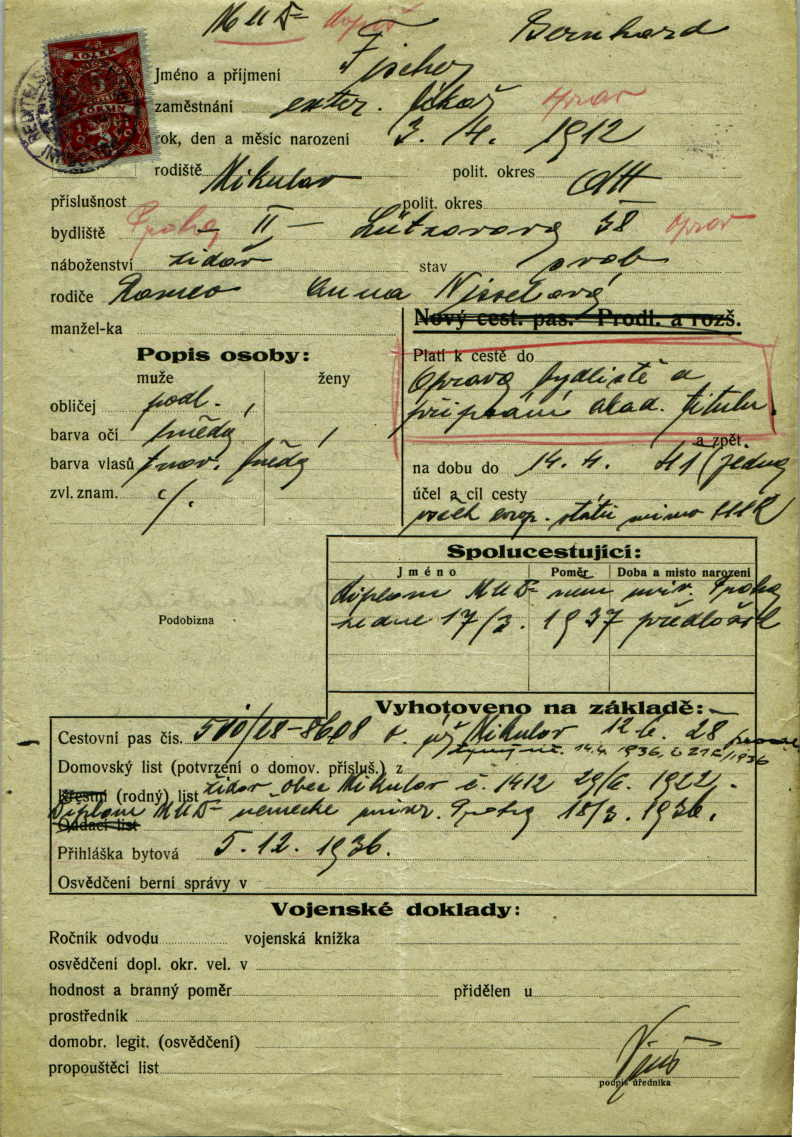 MUDr dopis Bernhard
Jméno a příjmení Fischer
zaměstnání exter. lékař oprav
rok, den a měsíc narození 3. 4. 1912
rodiště Mikulov polit. okres
příslušnost polit. okres
bydliště Praha II – Lützowova 38 oprav
náboženství židov stav svob
rodiče Romeo Anna Nisselová
manžel-ka
Nový cest. pas. Prodl. a rozš.
Platí k cestě do
Oprava bydliště a
připsání akad. titulu.
a zpět.
na dobu do 14. 4. 41 (jedna
účel a cíl cesty
všech evrop. států mimo SSSR
Popis osoby:
muže ženy
obličej podl.
barva očí hnědá
barva vlasů tmav. hnědá
zvl. znam. ./.
Podobizna
Spolucestující:
Jméno Poměr Doba a místo narození
Diplom MUDr něm univ. Praha
ze dne 17/3. 1937 předložil
Vyhotoveno na základě:
Cestovní pas čís. 510/28-8608 Mikulov 12 6. 28
14.4. 1936, č 212/1936
Domovský list (potvrzení o domov. přísluš.) z
Křestní (rodný) list židov. obec Mikulov č. 1412 29/6. 1922.
Diplom MUDr německé univer. Praha 18/3. 1936.
Oddací list
Přihláška bytová 5. 12. 1936.
Osvědčení berní správy v
Vojenské doklady:
Ročník odvodu vojenská knížka
osvědčení dopl. okr. vel. v
hodnost a branný poměr přidělen u
prostředník
domobr. legit. (osvědčení)
propouštěcí list
podpis úředníka